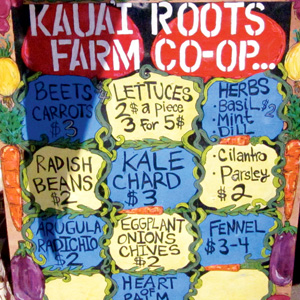 KAUAI ROOTS
FARM CO-OP...
BEETS
CARROTS
$3
LETTUCES
2$ a piece
3 FOR 5$
HERBS
• BASIL $2
• Mint
• DILL
RADISH
BEANS
$2
KALE
CHARD
$3
• Cilantro
• Parsley
$2
ARUGULA
RADICHIO
$2
EGGPLANT
ONIONS
CHIVES
$2
FENNEL
$3-4
HEART
OF
PALM